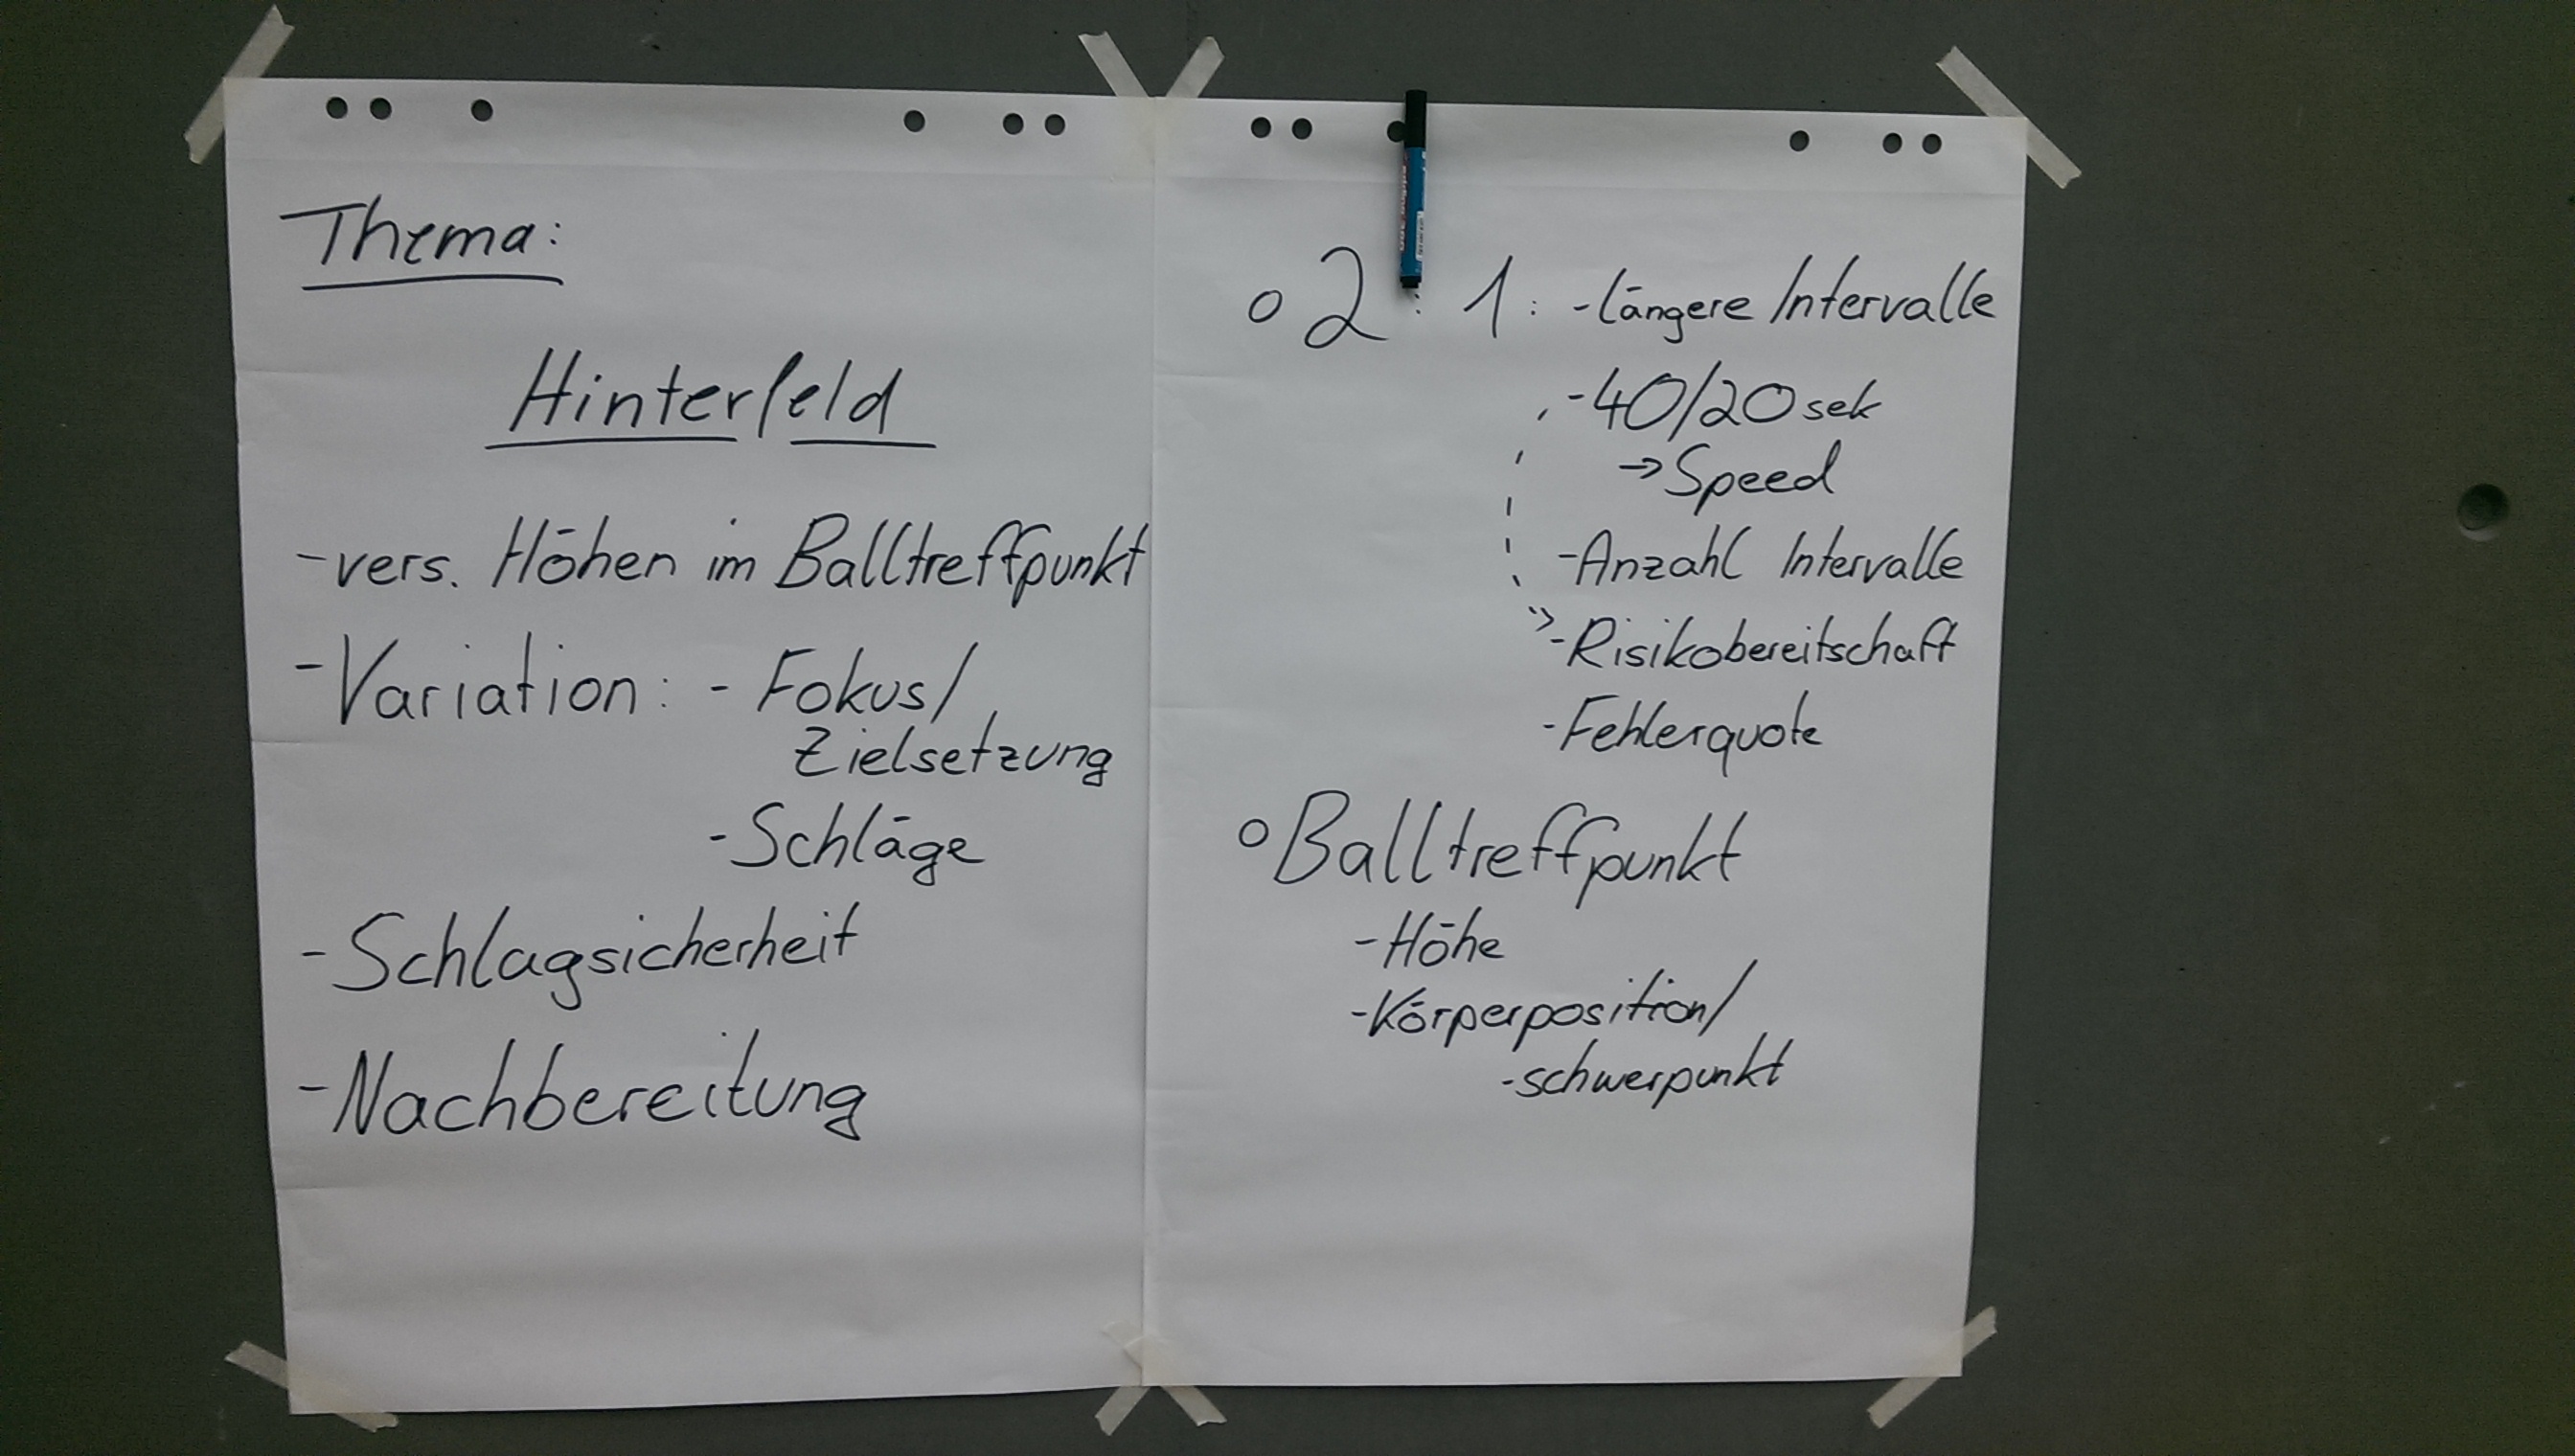 Thema:
Hinterfeld
-vers. Höhen im Balltreffpunkt
-Variation: - Fokus/
Zielsetzung
-Schläge
-Schlagsicherheit
-Nachbereitung
o 2 : 1 : -längere Intervalle
-40/20 sek
→Speed
-Anzahl Intervalle
-Risikobereitschaft
-Fehlerquote
o Balltreffpunkt
-Höhe
-Körperposition/
-schwerpunkt